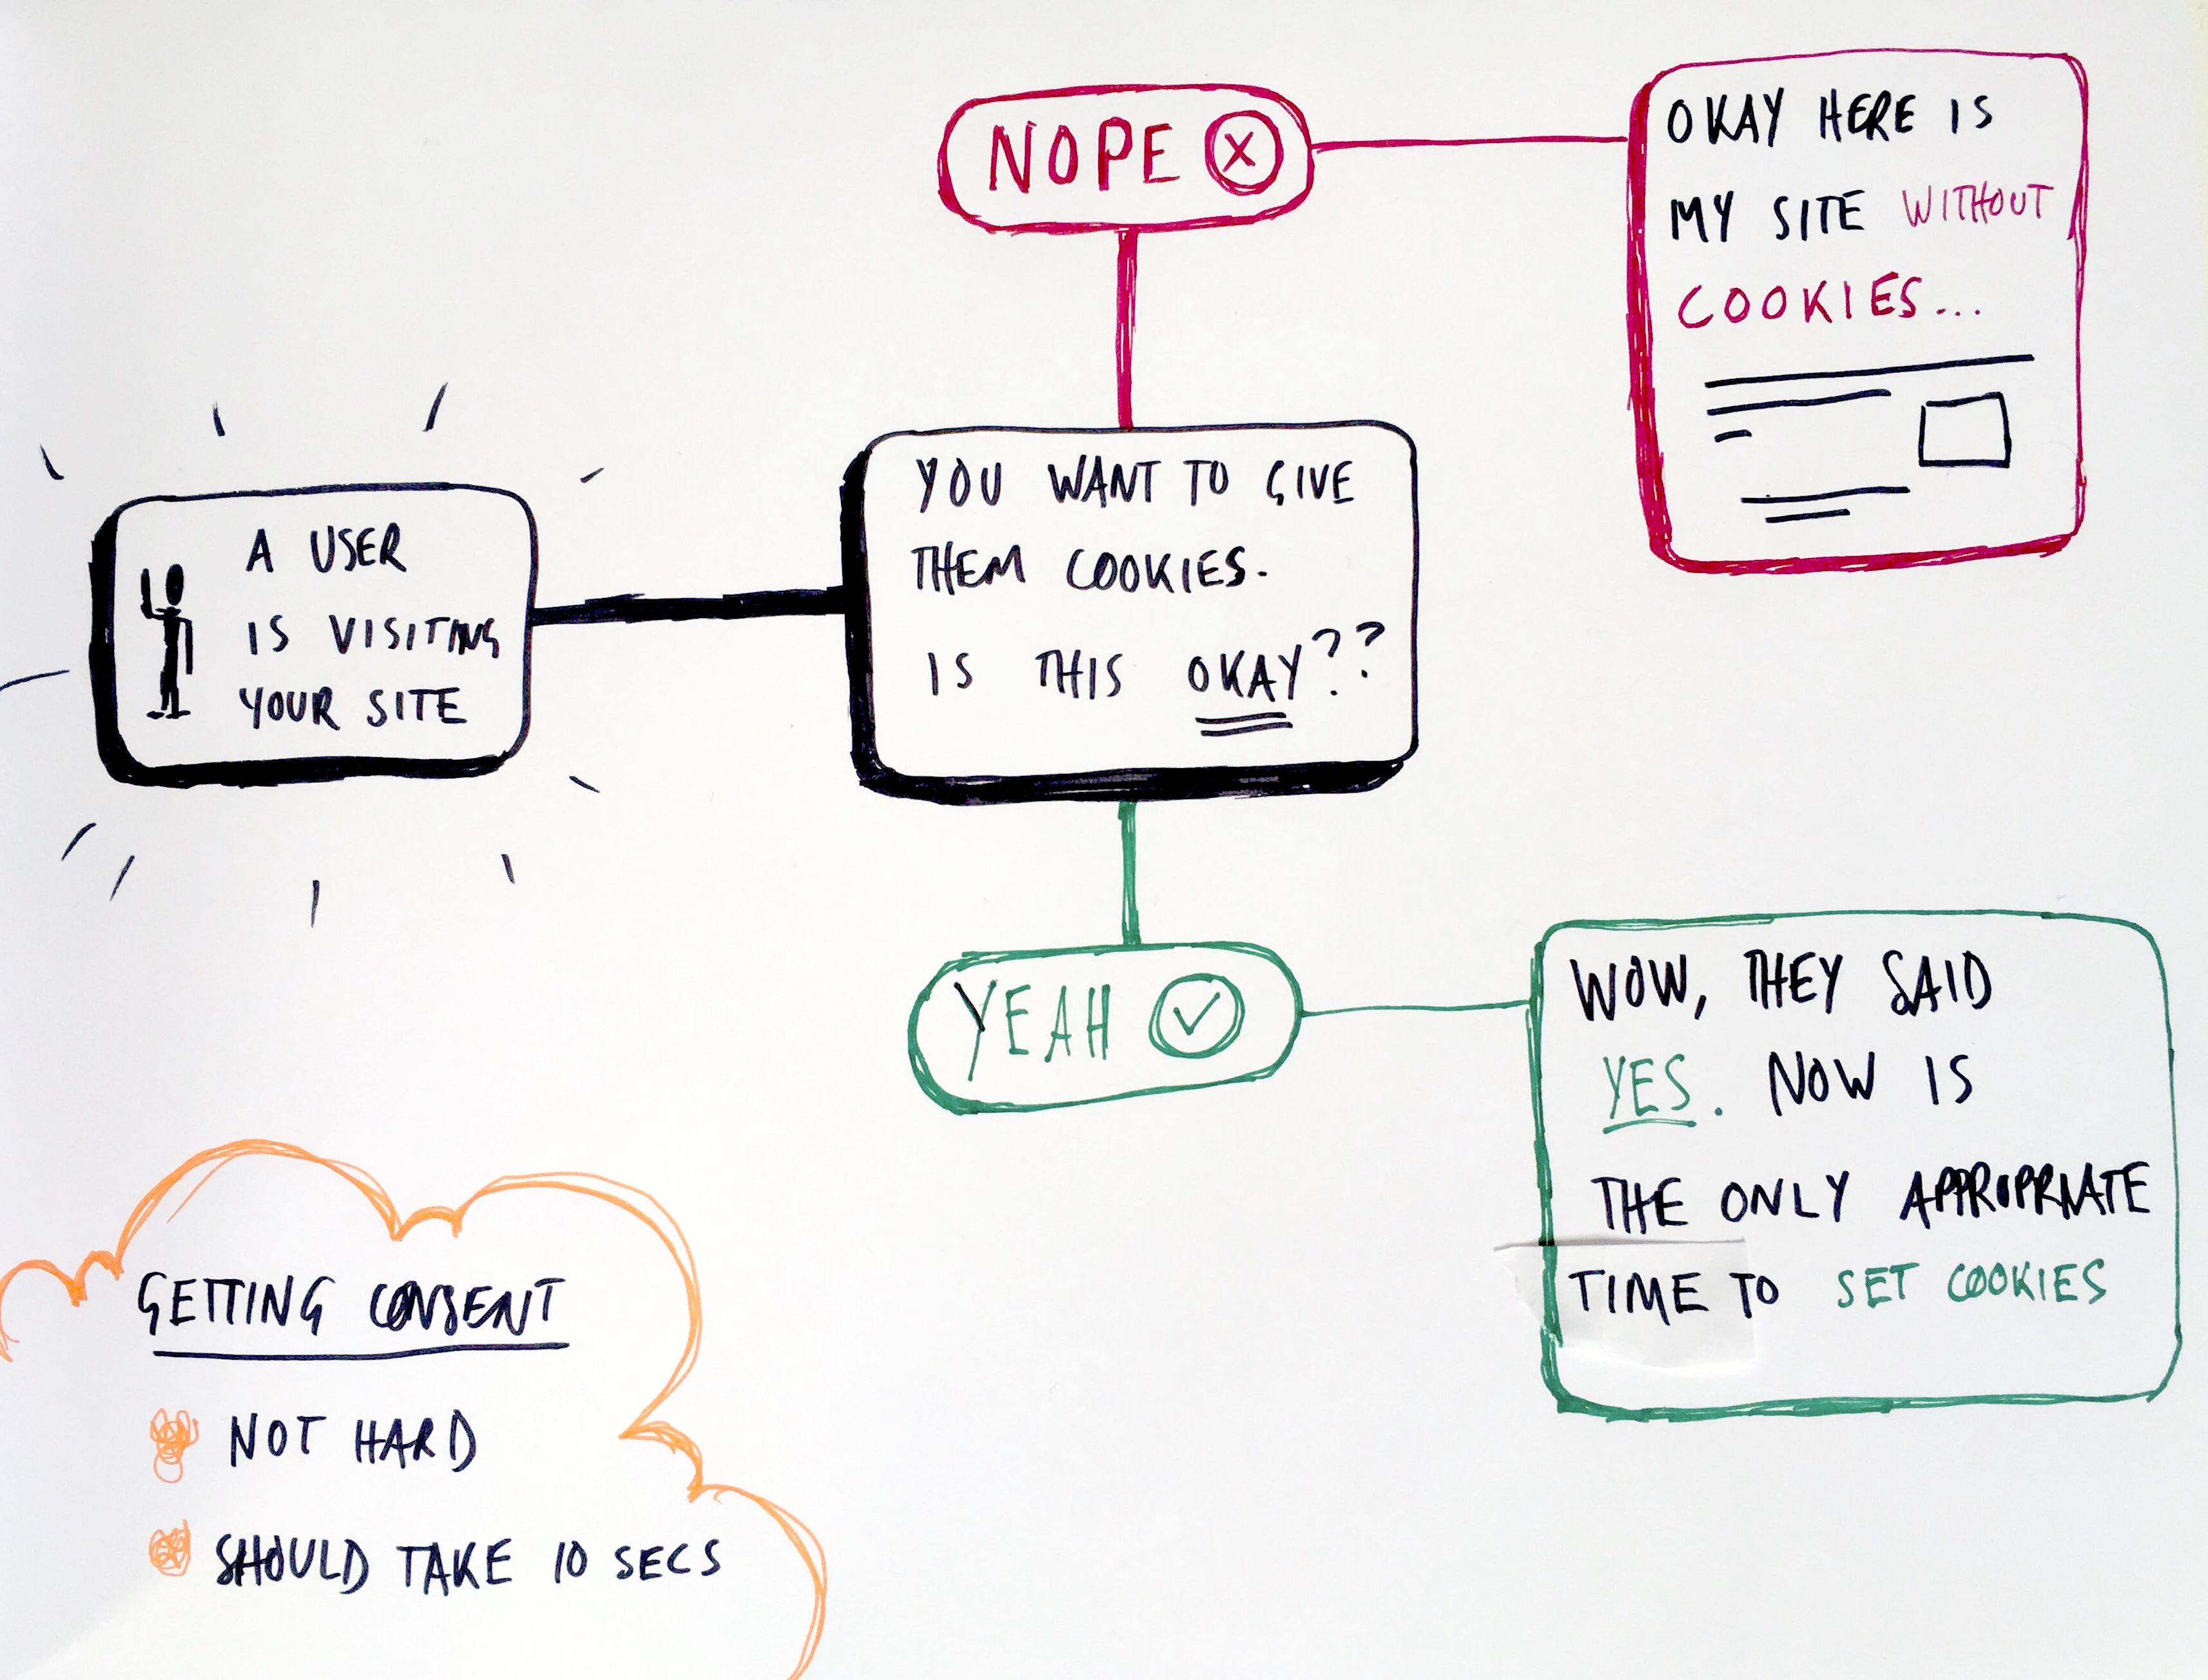 A USER
IS VISITING
YOUR SITE
YOU WANT TO GIVE
THEM COOKIES.
IS THIS OKAY??
NOPE
OKAY HERE IS
MY SITE WITHOUT
COOKIES...
YEAH
WOW, THEY SAID
YES. NOW IS
THE ONLY APPROPRIATE
TIME TO SET COOKIES
GETTING CONSENT
NOT HARD
SHOULD TAKE 10 SECS